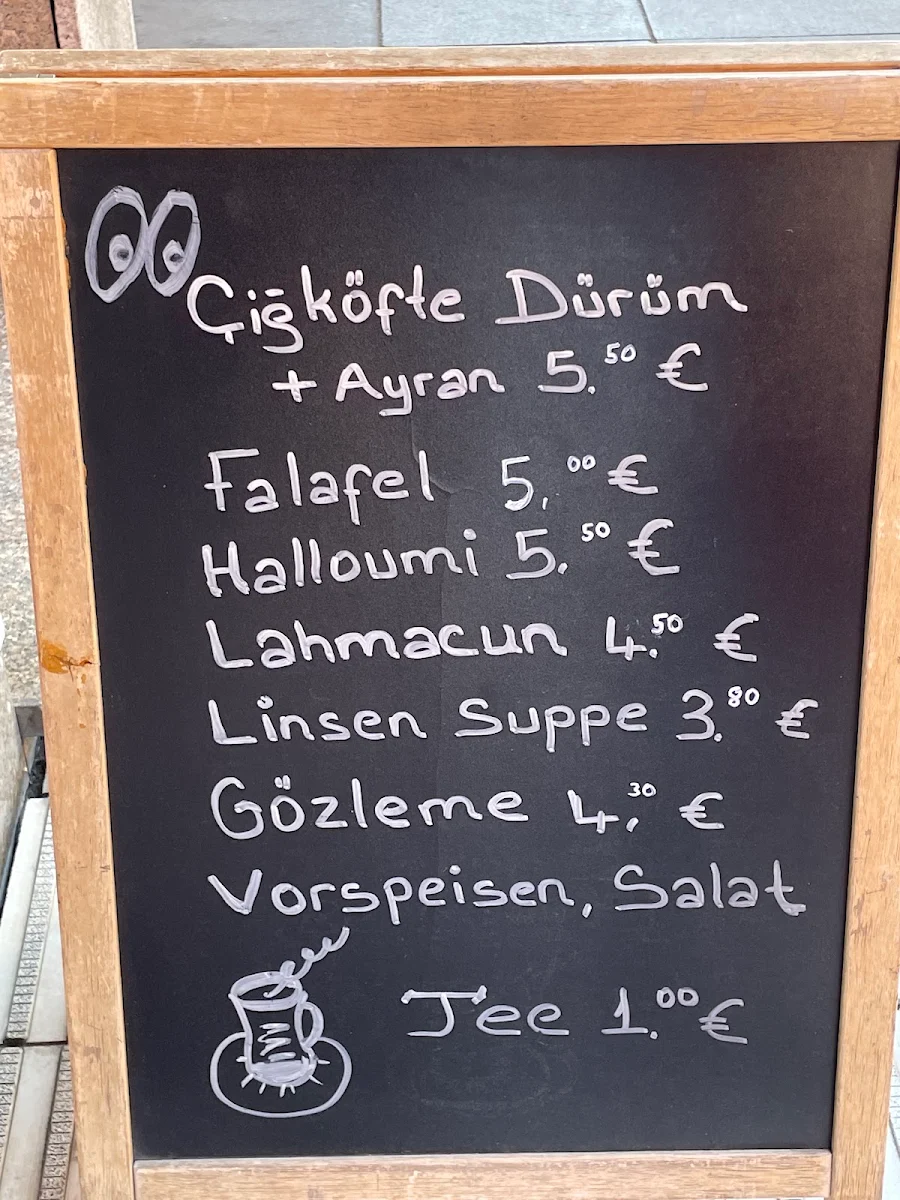 Çiğköfte Dürüm
+ Ayran 5.50 €
Falafel 5,00 €
Halloumi 5.50 €
Lahmacun 4.50 €
Linsen Suppe 3.80 €
Gözleme 4,30 €
Vorspeisen, Salat
Tee 1.00 €